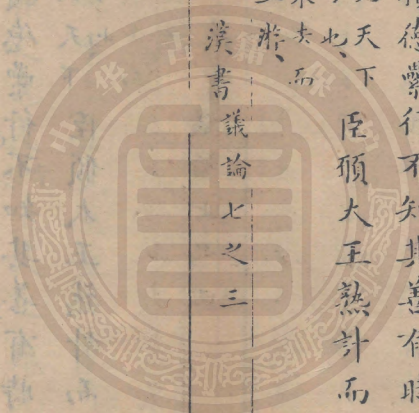 德纍行不知其善有時
天下
臣願大王熟計而
而
游、
漢書議論七之三
中华古籍保